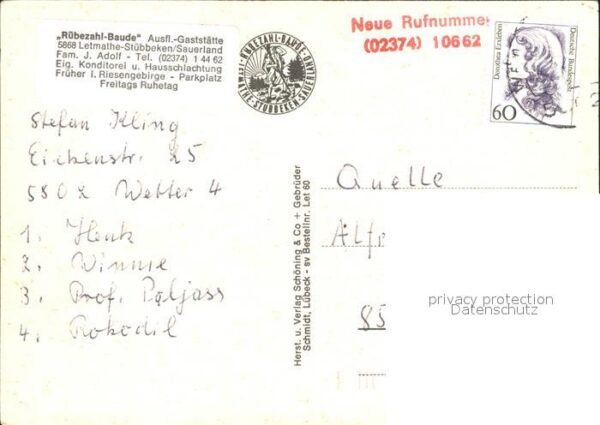 „Rübezahl-Baude" Ausfl.-Gaststätte
5868 Letmathe-Stübbeken/Sauerland
Fam. J. Adolf - Tel. (02374) 1 44 62
Eig. Konditorei u. Hausschlachtung
Früher i. Riesengebirge - Parkplatz
Freitags Ruhetag
RÜBEZAHL-BAUDE
Neue Rufnummer
(02374) 10662
Dorothea Erxleben
Deutsche Bundespost
60
Stefan Kling
Eichenstr. 25
5802 Wetter 4
1. Henk
2. Winnie
3. Prof. Poljass
4. Rokodil
Herst. u. Verlag Schöning & Co + Gebrüder
Schmidt, Lübeck - sv Bestellnr. Let 60
Quelle
Alfr
85
privacy protection
Datenschutz